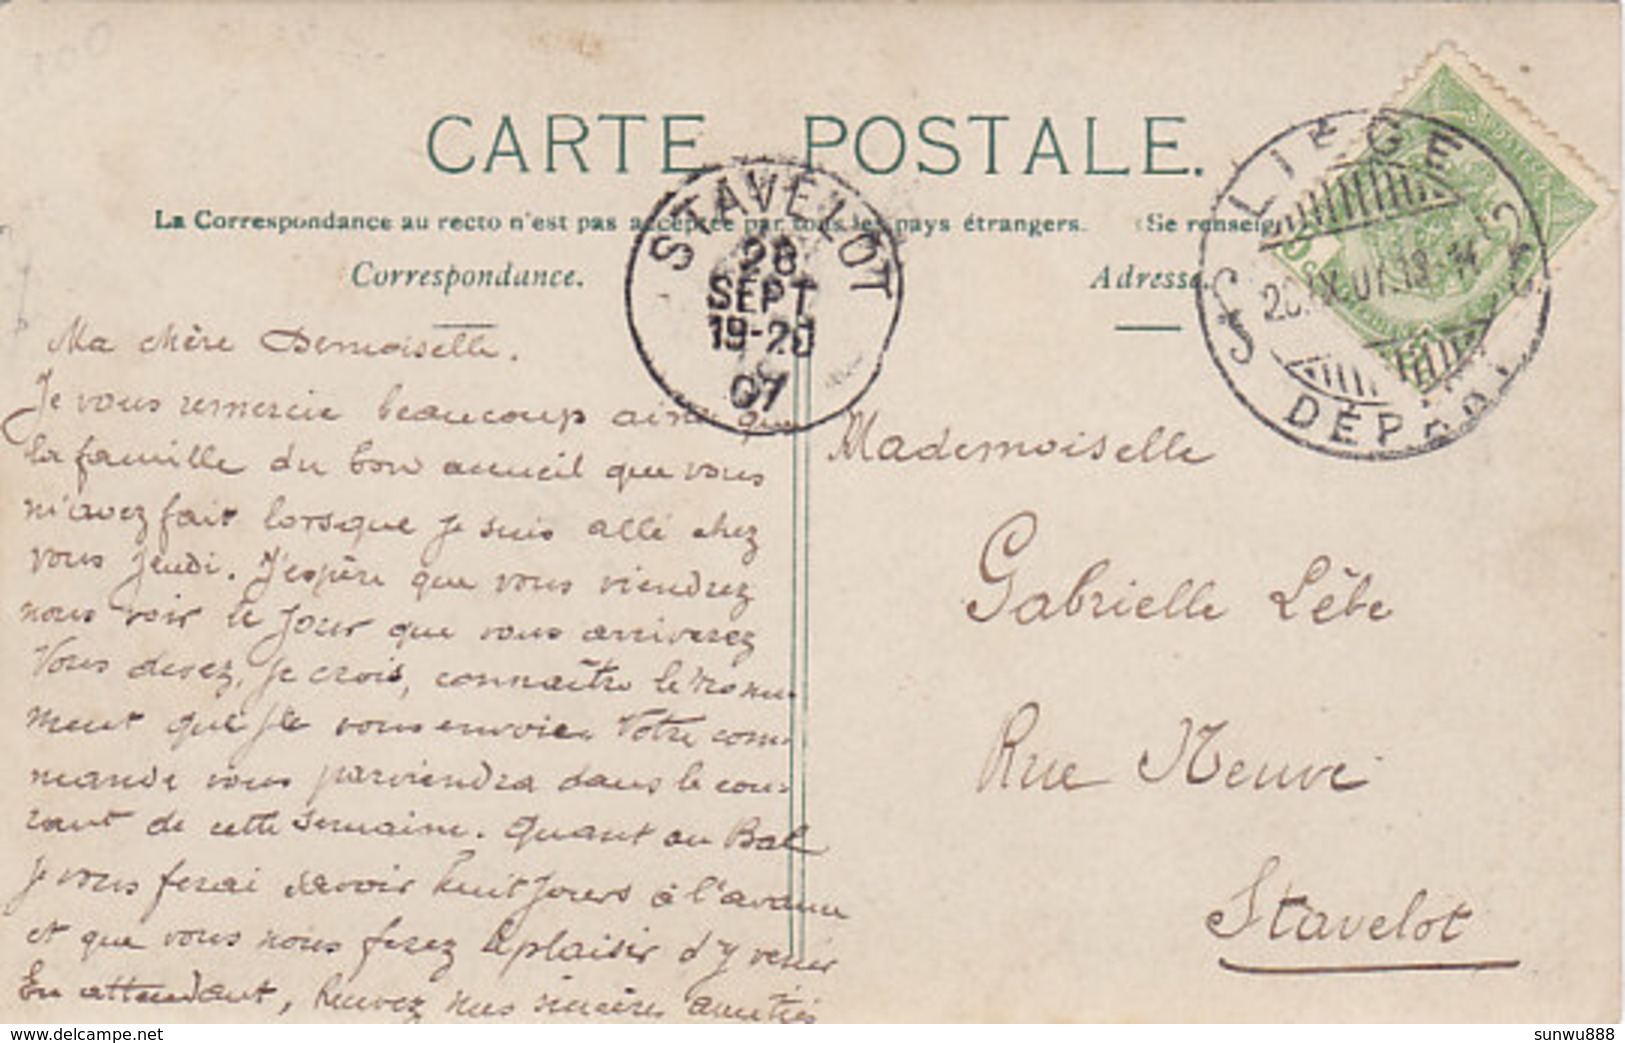 CARTE POSTALE.
La Correspondance au recto n'est pas acceptée par tous les pays étrangers. (Se renseig
Correspondance.
Adresse.
STAVELOT
28
SEPT
19-20
07
LIÉGE
DÉPART
Ma chère Demoiselle.
Je vous remercie beaucoup ainsi que
la famille du bon accueil que vous
m'avez fait lorsque je suis allé chez
vous jeudi. J'espère que vous viendrez
nous voir le jour que vous arriverez
Vous devez, je crois, connaître le monu-
ment que je vous envoie. Votre com-
mande vous parviendra dans le cou-
rant de cette semaine. Quant au Bal
je vous ferai savoir huit jours à l'avance
et que vous nous ferez le plaisir d'y venir
En attendant, Recevez mes sincères amitiés
Mademoiselle
Gabrielle Lèbe
Rue Neuve
Stavelot
delcampe.net
sunwu888